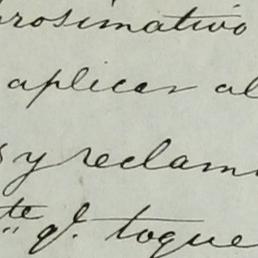 prosimativo
aplicar al
s y reclam
te „ qᵉ. toque